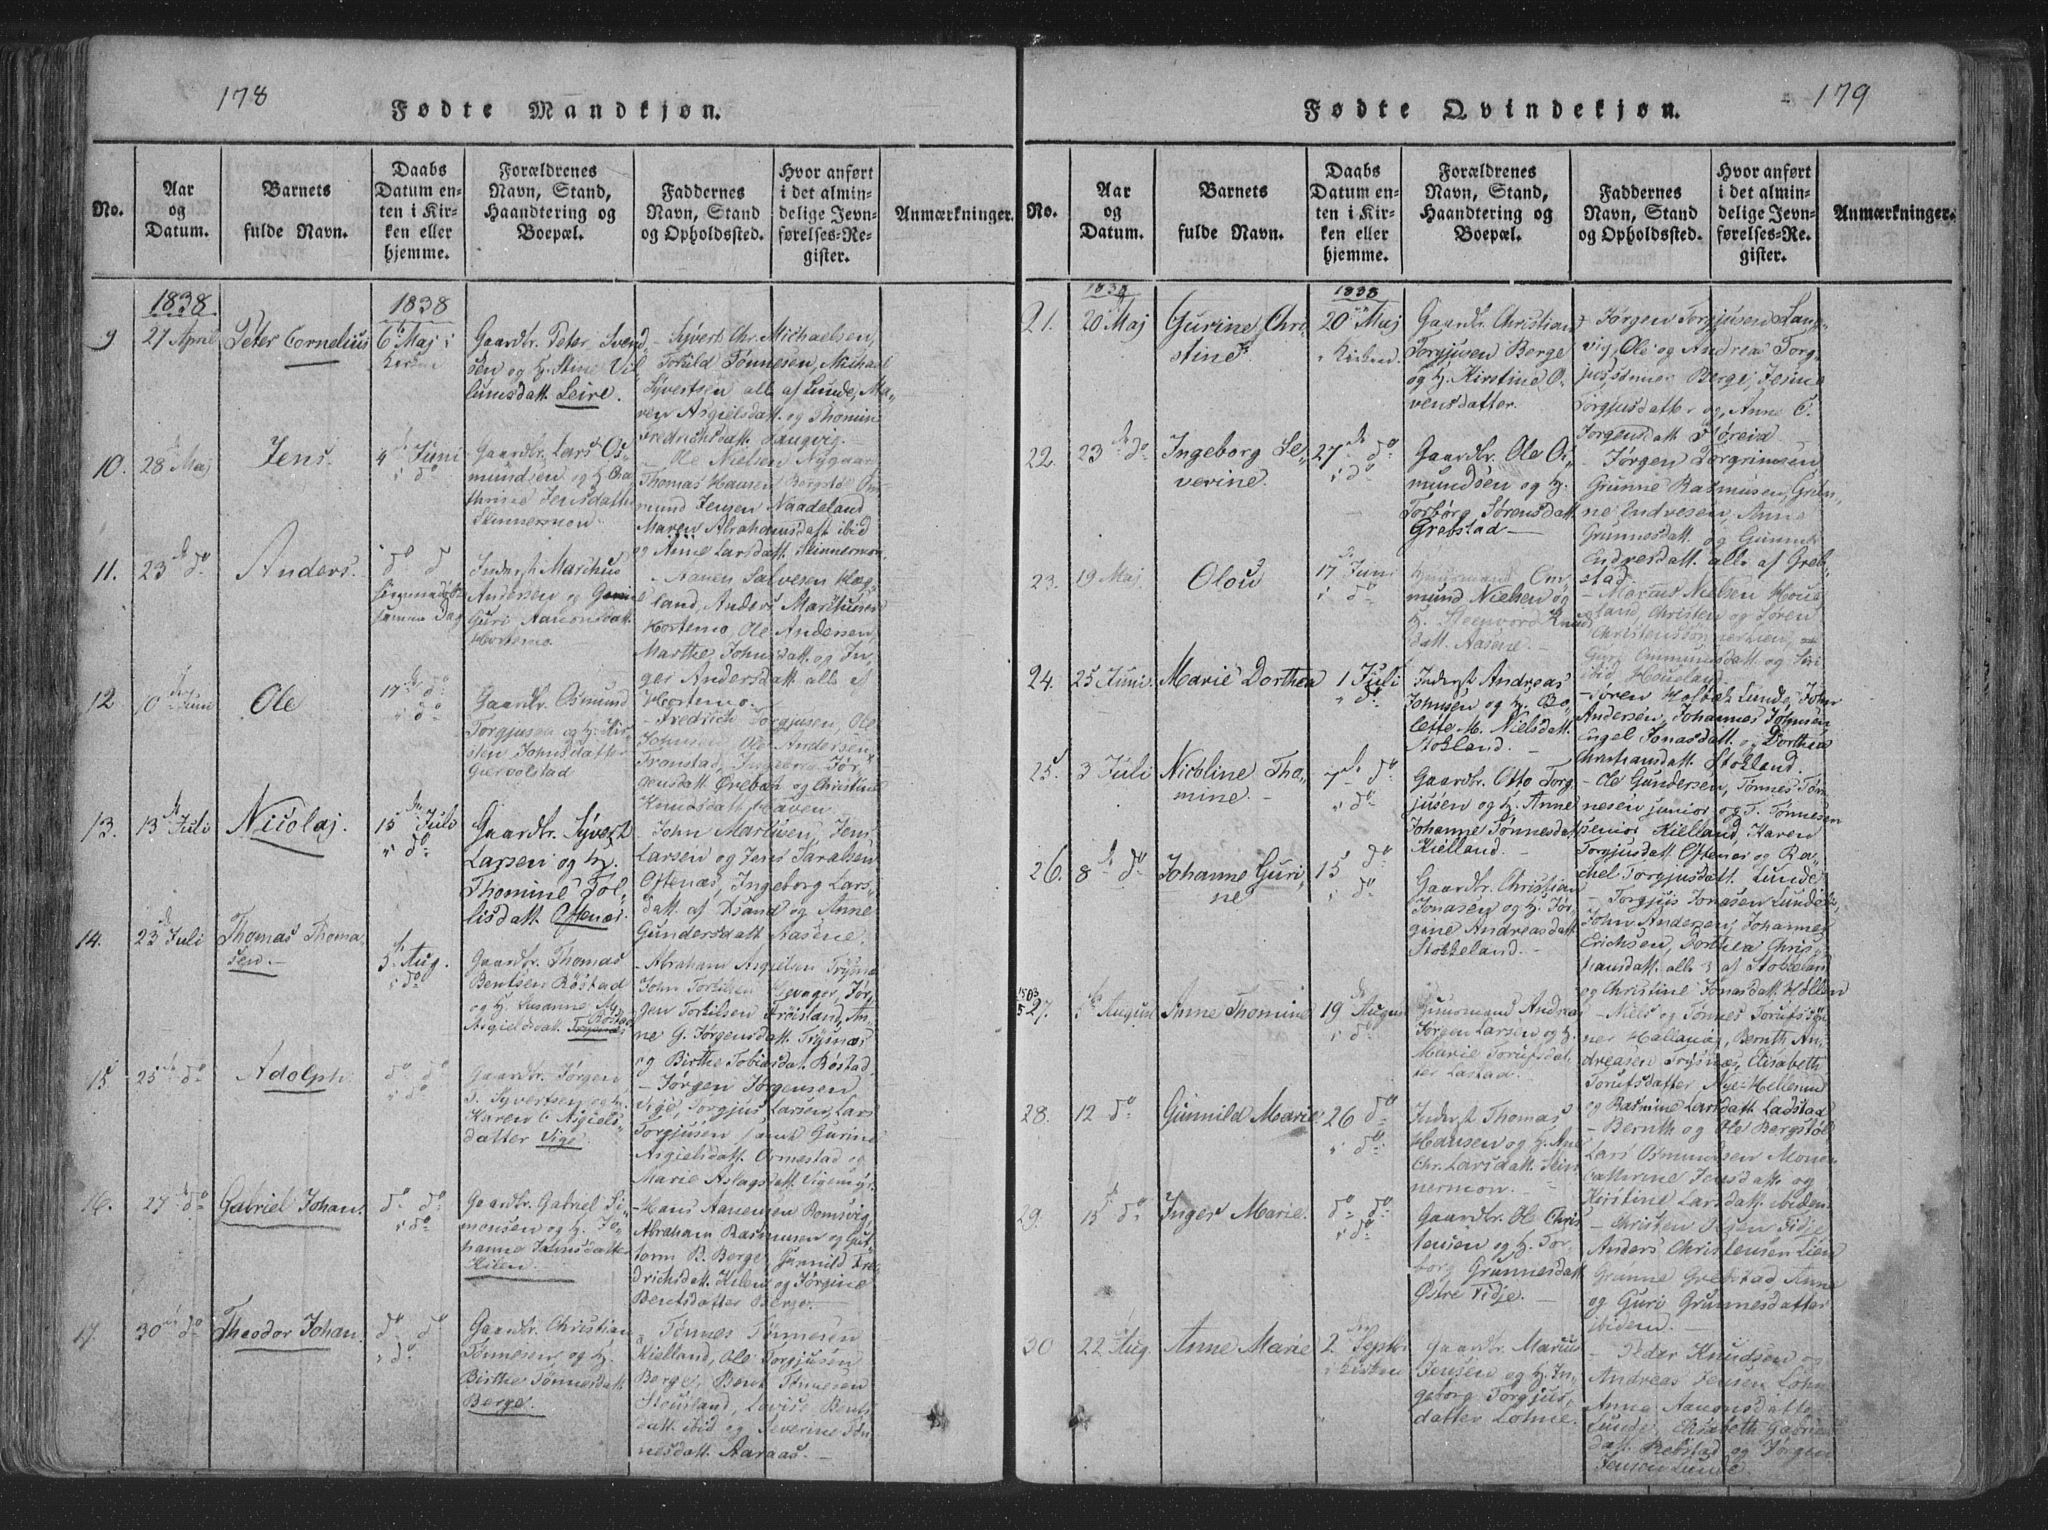 178
Fødte Mandkjøn.
No.
Aar
og
Datum.
Barnets
fulde Navn.
Daabs
Datum en-
ten i Kir-
ken eller
hjemme.
Forældrenes
Navn, Stand,
Haandtering og
Boepæl.
Faddernes
Navn, Stand
og Opholdssted.
Hvor anført
i det almin-
delige Jevn-
førelses-Re-
gister.
Anmærkninger.
1838
1838
9
27 April
Peter Cornelius
6te Maj i
Kirken
Gaardbr. Peter Svend
sen og H. Stine Vil
lumsdatt. Leire.
- Syvert Chr. Michaelsen,
Torkild Tønnesen, Michael
Syvertsen all. af Lunde, Ma-
ren Asgielsdatt. og Thomine
Fredrichsdatt. Langvig.-
10.
28 Maj
Jens.
4 Juni
i do
Gaardbr. Lars Os-
mundsen og H. Ca-
thrine Jensdatt.
Skinnermon
- Ole Nielsen Nygaard
Thomas Hansen Bergstøl Om-
mund Jensen Naadeland
Maren Abrahamsdatt ibid
og Anne Larsdatt. Skinnermon
11.
23 do
Anders.
do d
hjemmedøbt
samme Dag
Inderst Marthus
Andersen og
Guri Aanonsdatt.
Hortemo
- Aanen Salvesen Kleg-
land, Anders Marthuser
Hortemo, Ole Andersen,
Marthe Johnsdatt. og In-
ger Andersdatt alle af
Hortemo.
12
10 Juni
Ole
17 do
i do
Gaardbr. Osmund
Torgjusen og H. Kir-
sten Johnsdatter
Gjervolstad
- Fredrich Torgjusen, Ole
Johnsen, Ole Andersen
Tronstad, Ingeborg Jør-
gensdatt Ørebæk og Christine
Knudsdatt Haaven.
13.
13 Juli
Nicolaj.
15 Juli
i do
Gaardbr. Syvert
Larsen og H.
Thomine Tol-
lisdatt. Oftenæs.
John Martusen, Jens
Larsen og Jens Taralsen
Oftenæs, Ingeborg Lars-
datt. af Ødsand og Anne
Gundersdatt Aasene.
14.
23 Juli
Thomas Thoma-
sen.-
5 Aug.
i do
Gaardbr. Thomas
Bentsen Røstad
og H. Susanne
Asgielsdat. Røstad
- Abraham Asgielsen Trysnæs
John Torkilsen, Jør-
gen Torkilsen Frøisland, An-
ne G. Jørgensdatt. Trysnæs
og Birthe Tobiasdat. Røstad
15
25 do
Adolph.
do do
i do
Gaardbr. Jørgen
S. Syvertsen og H.
Karen C Asgiels-
datter Vige.
- Jørgen Jørgensen
Vige, Torgjus Larsen, Lars
Torgjusen samt Gurine
Asgielsdatt. Ormestad og
Marie Aslagsdatt. Vigemyr.
16.
27 do
Gabriel Johan.
do do
i do
Gaardbr. Gabriel Si-
monsen og H. Jo-
hanne Jahnsdatter
Kilen.
- Hans Aanensen Romsvig,
Abraham Rasmusen og Gut-
torm B. Berge, Gunnild Fre-
drichsdatt. Kilen og Jørgine
Bentsdatter Berge.
17.
30 do
Theodor Johan.
do do
i do
Gaardbr. Christian
Tønnesen og H.
Birthe Tønnesdatt.
Berge.
Tønnes Tønnesen
Kielland, Ole Torgjusen
Berge, Bent Tønnesen
Stousland, Lovise Bents
datt. ibid og Severine Tøn-
nesdatt. Aaraas.
179
Fødte Qvindekjøn.
No.
Aar
og
Datum.
Barnets
fulde Navn.
Daabs
Datum en-
ten i Kir-
ken eller
hjemme.
Forældrenes
Navn, Stand,
Haandtering og
Boepæl.
Faddernes
Navn, Stand
og Opholdssted.
Hvor anført
i det almin-
delige Jevn-
førelses-Re-
gister.
Anmærkninger.
1838
1838
21.
20 Maj
Gurine Chri-
stine
20 Maj
i Kirken
Gaardbr. Christian
Torgjusen Berge
og H. Kirstine O-
vensdatter.
- Jørgen Torgjusen Lang-
vig, Ole og Andreas Torg-
jussønner Berge, Jenine
Torgjusdatter og Anne C.
Jørgensdatt Fløreia.
22.
23 do
Ingeborg Se-
verine.
27 do
i do
Gaardbr. Ole Os-
mundsen og H.
Torborg Sørensdatt.
Grebstad
- Jørgen Torgrimsen
Grunne Rasmusen, Grun-
ne Endresen, Anne
Grunnesdatt. og Gunnor
Endresdatt. alle af Greb-
stad.
23.
19 Maj
Olou
17 Juni
i do
Huusmand Om-
mund Nielsen og
H. Steenvord Knuds
datt. Aasene.
- Marcus Nielsen Houe-
land, Christen og Søren
Christenssønner Lien,
Guri Ommundsdatt. og Siri
ibid Houeland
24.
25 Juni.
Marie Dorthea
1 Juli
i do
Inderst Andreas
Johnsen og H. Bo-
lette M. Nielsdatt.
Stokland.
- Søren Holbæk Lunde, John
Andersen, Johannes Johnsen,
Engel Jonasdatt. og Dorthea
Christiansdatt. Stokland.
25.
3 Juli
Nicoline Tho-
mine.
7de do
i do
Gaardbr. Otto Torg-
jusen og H. Anne
Johanne Tønnesdat.
Kielland.
- Ole Gundersen, Tønnes Tøn-
nesen junior og T. Tønnesen
senior Kielland, Karen
Torgjusdatt. Oftenæs og Ra-
chel Torgjusdatt. Lunde
26.
8 do
Johanne Guri-
ne
15 do
i do
Gaardbr. Christian
Jonasen og H. Jør-
gine Andreasdatt.
Stokkeland.
- Torgjus Jonasen Lunde,
John Andersen, Johannes
Erichsen, Dorthea Chris-
tiansdatt. alle 3 af Stokkeland
og Christine Jonasdatt. Høllen
27.
5 August
Anne Thomine
19 August
i do
Huusmand Andreas
Jørgen Larsen og H.
Marie Torufsdat-
ter Lastad.
- Niels og Tønnes Torufssøn-
ner Hallanæs, Bernth An-
dreasen Trysnæs, Elisabeth
Torufsdatter Nye-Hellesund
og Rasmine Larsdatt. Ladstad
28.
12 do
Gunnild Marie
26 do
i do
Inderst Thomas
Hansen og H. Ane
Chr. Larsdatt. Skin-
nermon.
- Bernth og Ole Bergstøl
Lars Osmundsen Monen
Cathrine Jensdatt. og
Kirstine Larsdatt. ibidem
29.
15 do
Inger Marie.
do do
i do
Gaardbr. Ole Chris-
tensen og H. Tor-
borg Grunnesdatt.
Østre Tidje.
- Christen Olsen Tidje
Anders Christensen Lien
Grunne Grebstad Anne
og Guri Grunnesdatter
ibidem.
30
22 Aug.
Anne Marie
2 Septbr
i Kirken
Gaardbr. Marius
Jensen og H. In-
geborg Torgjus-
datter Lohne.
- Peder Knudsen og
Andreas Jensen Lohne
Anna Aanonsdatter
Lunde, Elisabeth Gabriels
datt. Rebstad og Jørgen
Jensen Lunde.